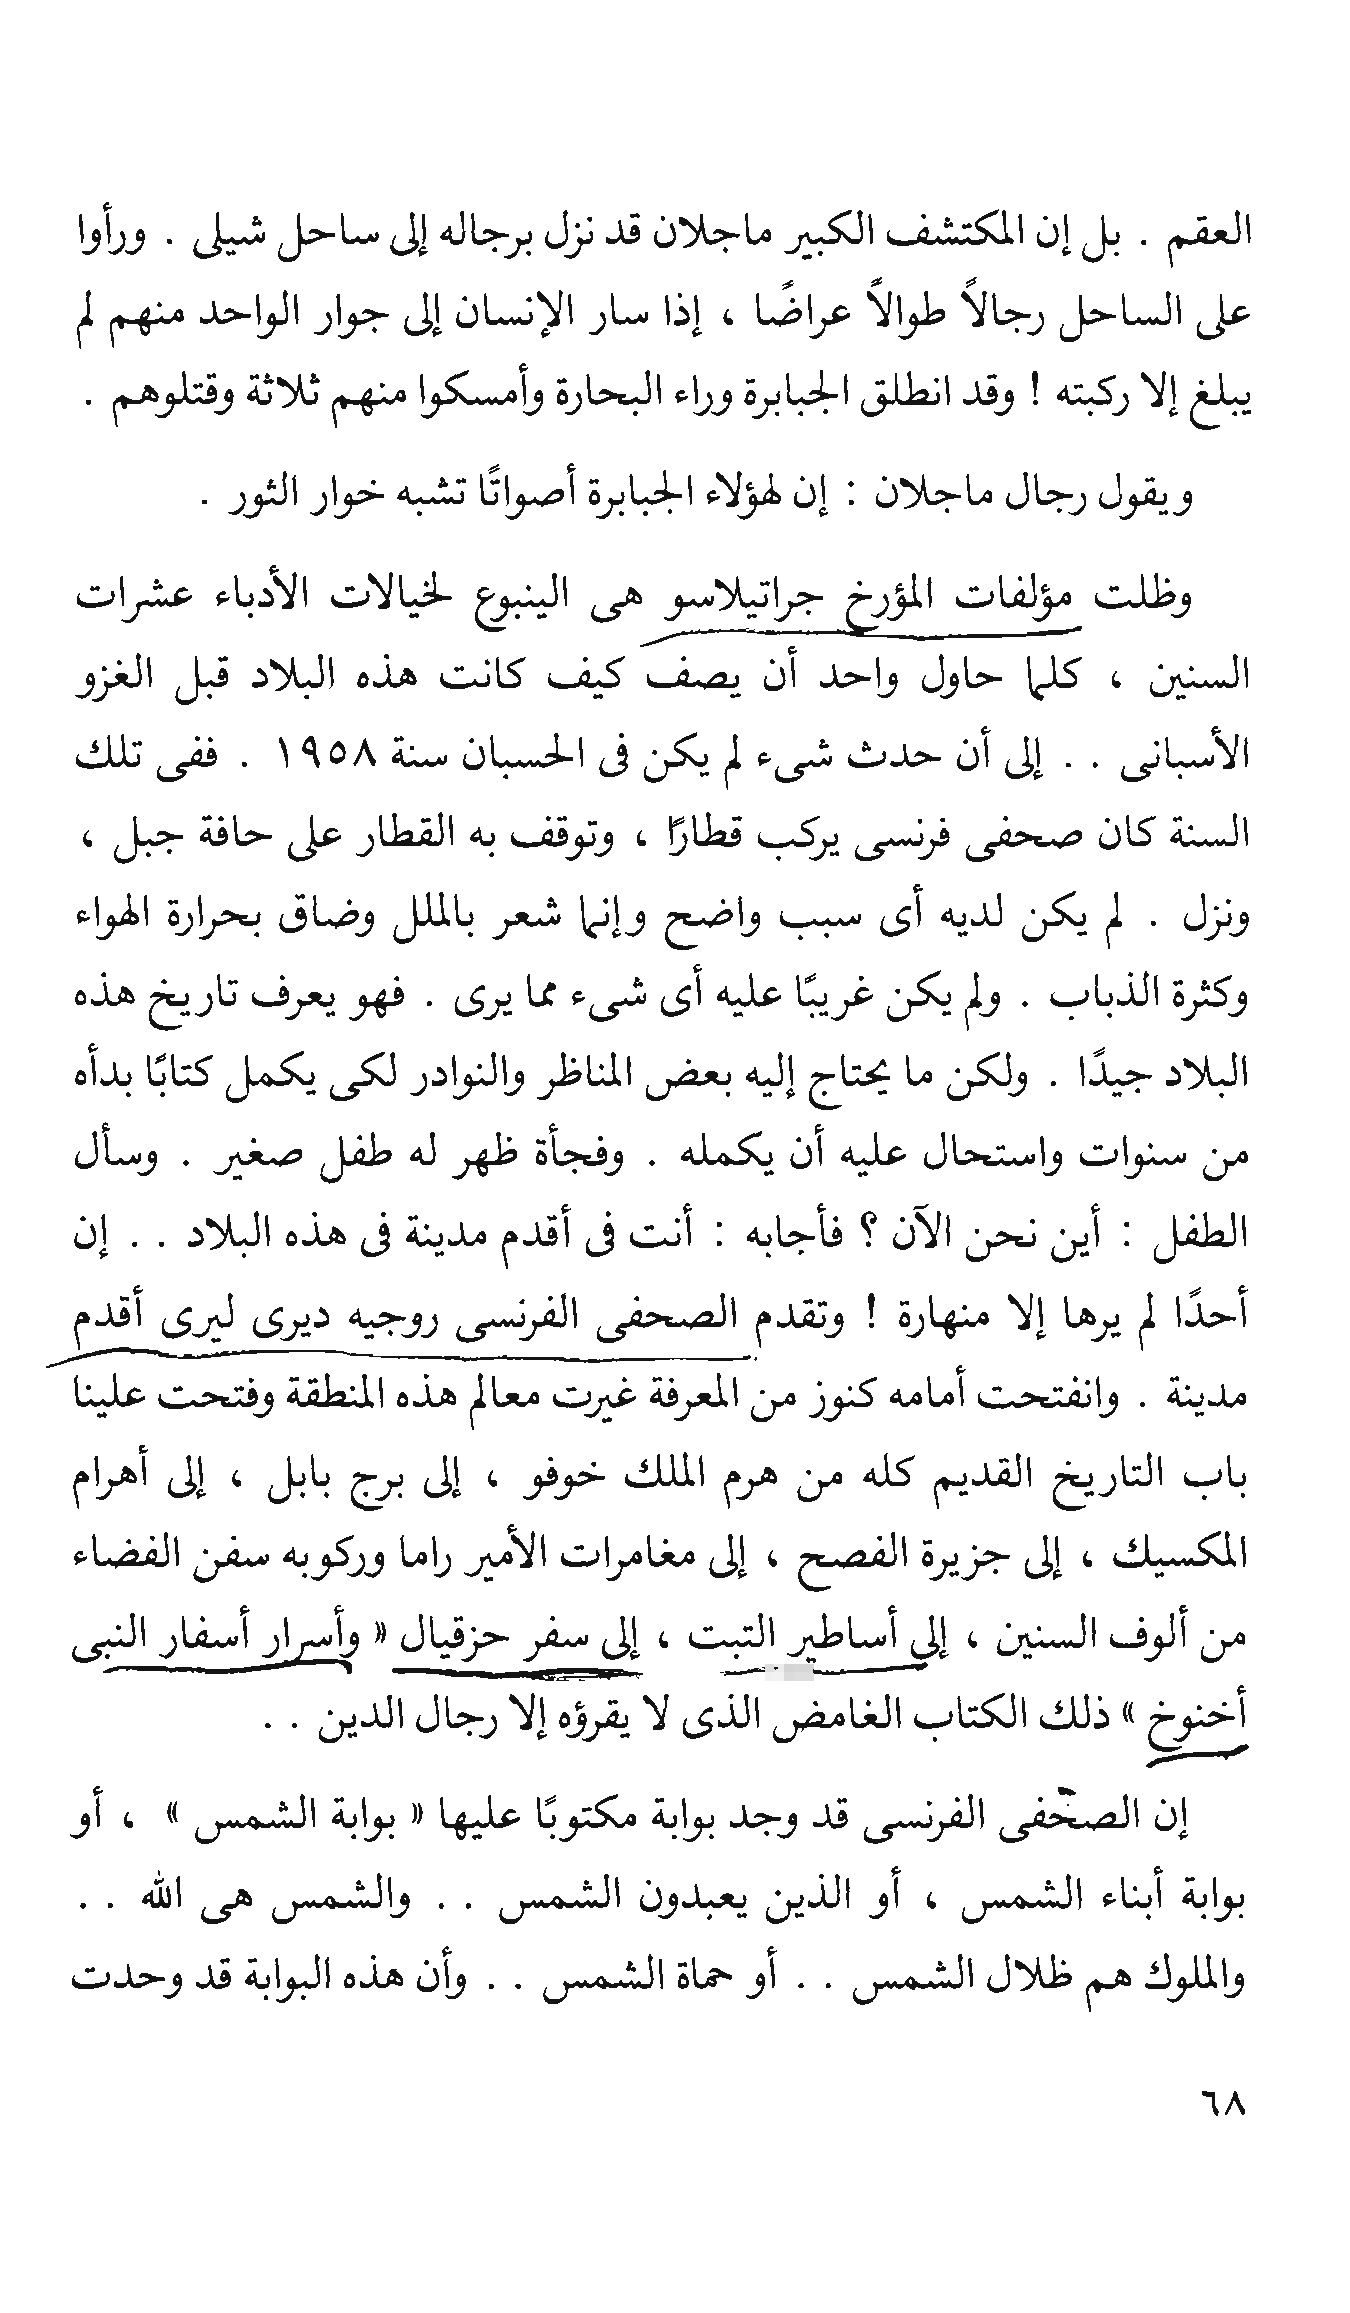 العقم . بل إن المكتشف الكبير ماجلان قد نزل برجاله إلى ساحل شيلى . ورأوا
على الساحل رجالاً طوالاً عراضًا ، إذا سار الإنسان إلى جوار الواحد منهم لم
يبلغ إلا ركبته ! وقد انطلق الجبابرة وراء البحارة وأمسكوا منهم ثلاثة وقتلوهم .
ويقول رجال ماجلان : إن لهؤلاء الجبابرة أصواتًا تشبه خوار الثور .
وظلت مؤلفات المؤرخ جراتيلاسو هى الينبوع لخيالات الأدباء عشرات
السنين ، كلما حاول واحد أن يصف كيف كانت هذه البلاد قبل الغزو
الأسبانى . . إلى أن حدث شىء لم يكن فى الحسبان سنة ١٩٥٨ . ففى تلك
السنة كان صحفى فرنسى يركب قطارًا ، وتوقف به القطار على حافة جبل ،
ونزل . لم يكن لديه أى سبب واضح وإنما شعر بالملل وضاق بحرارة الهواء
وكثرة الذباب . ولم يكن غريبًا عليه أى شىء مما يرى . فهو يعرف تاريخ هذه
البلاد جيدًا . ولكن ما يحتاج إليه بعض المناظر والنوادر لكى يكمل كتابًا بدأه
من سنوات واستحال عليه أن يكمله . وفجأة ظهر له طفل صغير . وسأل
الطفل : أين نحن الآن ؟ فأجابه : أنت فى أقدم مدينة فى هذه البلاد . . إن
أحدًا لم يرها إلا منهارة ! وتقدم الصحفى الفرنسى روجيه ديرى ليرى أقدم
مدينة . وانفتحت أمامه كنوز من المعرفة غيرت معالم هذه المنطقة وفتحت علينا
باب التاريخ القديم كله من هرم الملك خوفو ، إلى برج بابل ، إلى أهرام
المكسيك ، إلى جزيرة الفصح ، إلى مغامرات الأمير راما وركوبه سفن الفضاء
من ألوف السنين ، إلى أساطير التبت ، إلى سفر حزقيال « وأسرار أسفار النبى
أخنوخ » ذلك الكتاب الغامض الذى لا يقرؤه إلا رجال الدين . .
إن الصحفى الفرنسى قد وجد بوابة مكتوبًا عليها « بوابة الشمس » ، أو
بوابة أبناء الشمس ، أو الذين يعبدون الشمس . . والشمس هى الله . .
والملوك هم ظلال الشمس . . أو حماة الشمس . . وأن هذه البوابة قد وحدت
٦٨